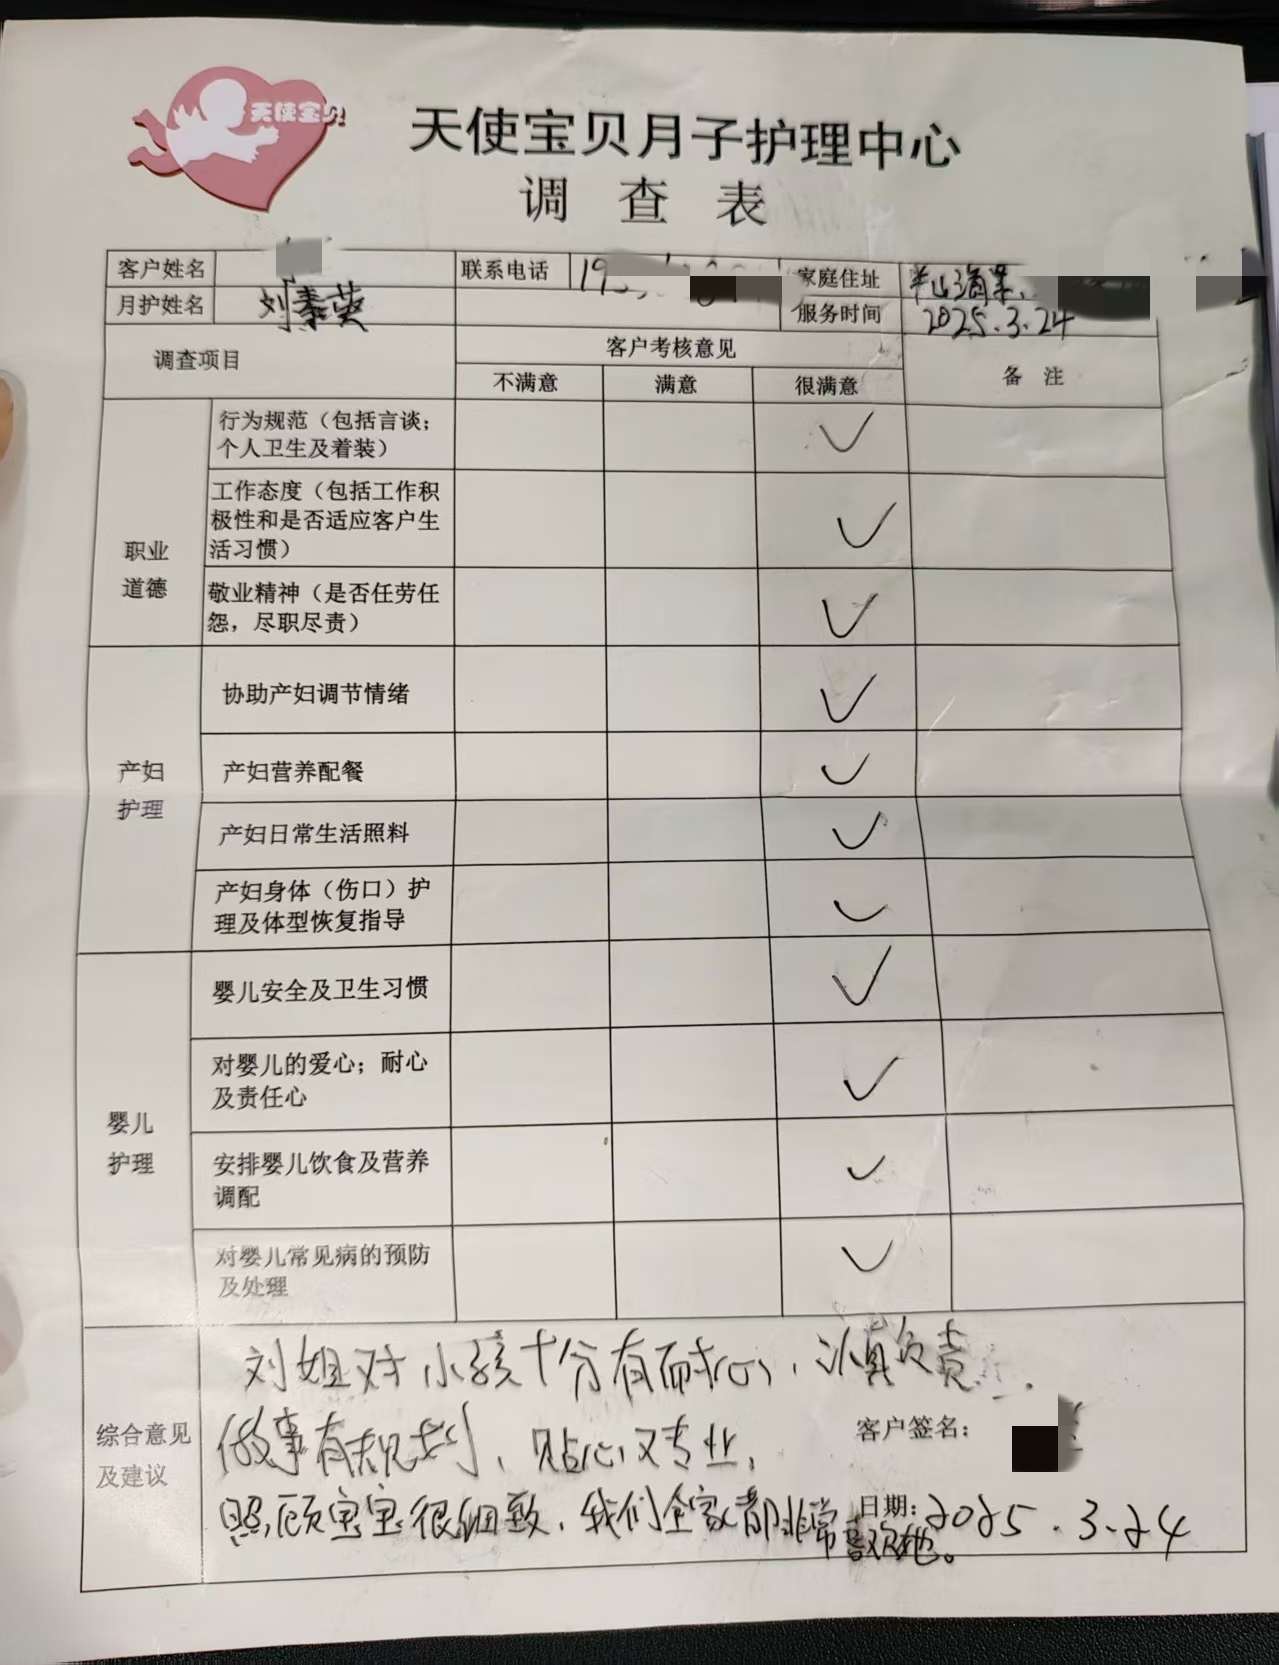 天使宝贝
天使宝贝月子护理中心
调 查 表
客户姓名 联系电话 家庭住址
月护姓名 刘 服务时间 2025.3.24
调查项目 客户考核意见 备 注
不满意 满意 很满意
职业
道德
行为规范（包括言谈；
个人卫生及着装）
工作态度（包括工作积
极性和是否适应客户生
活习惯）
敬业精神（是否任劳任
怨，尽职尽责）
产妇
护理
协助产妇调节情绪
产妇营养配餐
产妇日常生活照料
产妇身体（伤口）护
理及体型恢复指导
婴儿
护理
婴儿安全及卫生习惯
对婴儿的爱心；耐心
及责任心
安排婴儿饮食及营养
调配
对婴儿常见病的预防
及处理
综合意见
及建议
刘姐对小孩十分有耐心、认真负责
做事有规划、贴心又专业，
照顾宝宝很细致，我们全家都非常喜欢她。
客户签名：
日期：2025.3.24